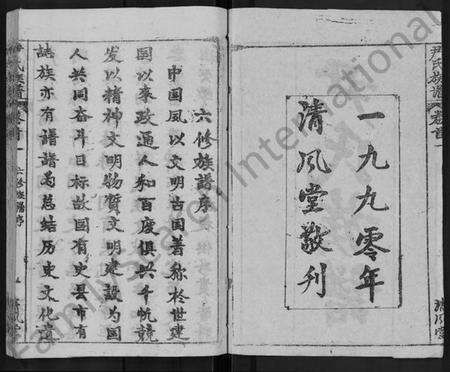 尹氏族谱 卷首一
一九九零年
清风堂敬刊
清风堂
六修族谱序
中国夙以文明古国著称于世建
国以来政通人和百废俱兴千帆竞
发以精神文明物质文明建设为国
人共同奋斗目标故国有史县市有
志族亦有谱谱为总结历史文化遗
氏族谱 卷首一 六修族谱序
FamilySearch International